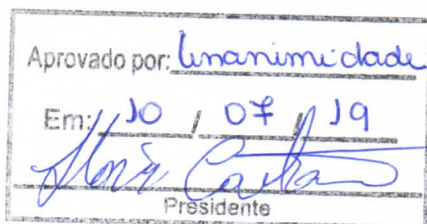 Aprovado por: Unanimidade
Em: 10 / 07 / 19
Presidente